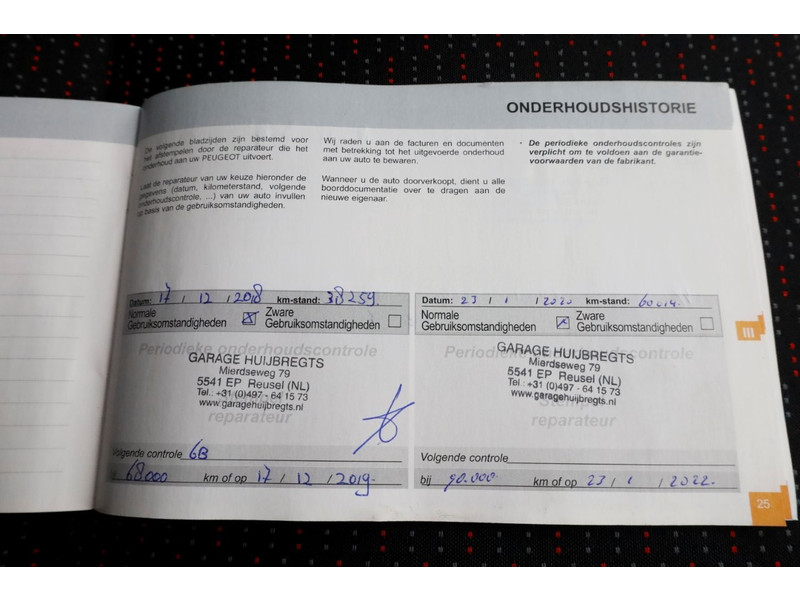 ONDERHOUDSHISTORIE
De volgende bladzijden zijn bestemd voor
het afstempelen door de reparateur die het
onderhoud aan uw PEUGEOT uitvoert.
Laat de reparateur van uw keuze hieronder de
gegevens (datum, kilometerstand, volgende
onderhoudscontrole, ...) van uw auto invullen
op basis van de gebruiksomstandigheden.
Wij raden u aan de facturen en documenten
met betrekking tot het uitgevoerde onderhoud
aan uw auto te bewaren.
Wanneer u de auto doorverkoopt, dient u alle
boorddocumentatie over te dragen aan de
nieuwe eigenaar.
- De periodieke onderhoudscontroles zijn
verplicht om te voldoen aan de garantie-
voorwaarden van de fabrikant.
Datum: 17 / 12 / 2018 km-stand: 38259.
Normale Gebruiksomstandigheden
Zware Gebruiksomstandigheden
Periodieke onderhoudscontrole
GARAGE HUIJBREGTS
Mierdseweg 79
5541 EP Reusel (NL)
Tel.: +31 (0)497 - 64 15 73
www.garagehuijbregts.nl
reparateur
Volgende controle 6B
68000 km of op 17 / 12 / 2019
Datum: 23 / 1 / 2020 km-stand:
Normale Gebruiksomstandigheden
Zware Gebruiksomstandigheden
GARAGE HUIJBREGTS
Mierdseweg 79
5541 EP Reusel (NL)
Tel.: +31 (0)497 - 64 15 73
www.garagehuijbregts.nl
Stempel
reparateur
Volgende controle
bij 90.000 km of op 23 / 1 / 2022.
III
25